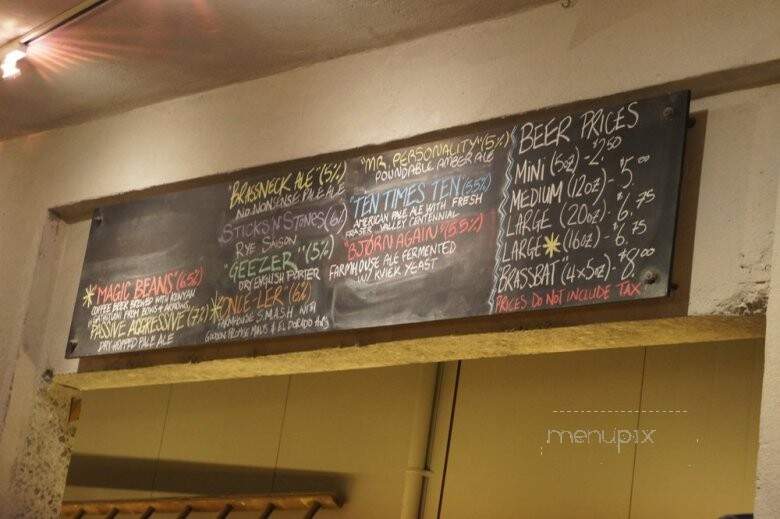 "MAGIC BEANS" (6.5%)
COFFEE BEER BREWED WITH KENYAN
FROM BOWS & ARROWS
"PASSIVE AGGRESSIVE" (7%)
DRY HOPPED PALE ALE
"BRASNECK ALE" (5%)
NO NONSENSE PALE ALE
"STICKS N' STONES" (6%)
RYE SAISON
"GEEZER" (5%)
DRY ENGLISH PORTER
"ONE-LER" (6%)
FARMHOUSE S.M.A.S.H WITH
GOLDEN PROMISE MALTS & EL DORADO HOPS
"MR. PERSONALITY" (5%)
POUNDABLE AMBER ALE
"TEN TIMES TEN" (5.5%)
AMERICAN PALE ALE WITH FRESH
FRASER VALLEY CENTENNIAL
"BJÖRN AGAIN" (5.5%)
FARMHOUSE ALE FERMENTED
W/ KVIEK YEAST
BEER PRICES
MINI (5oz) - 2.50
MEDIUM (12oz) - $5.00
LARGE (20oz) - $6.75
LARGE (16oz) - $6.75
BRASSBAT (4x5oz) - $8.00
PRICES DO NOT INCLUDE TAX
menupix